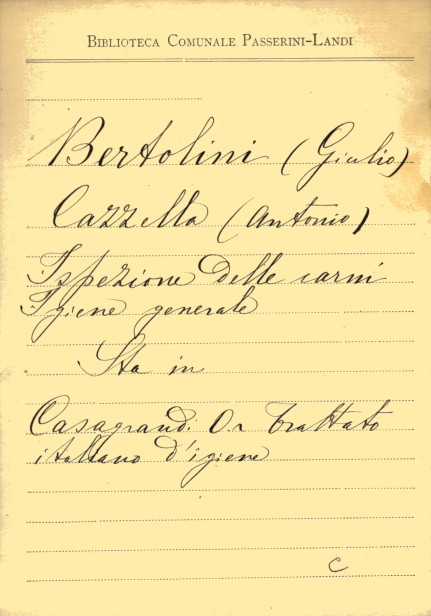 BIBLIOTECA COMUNALE PASSERINI-LANDI
Bertolini (Giulio)
Cazzella (Antonio)
Ispezione delle carni
Igiene generale
Sta in
Casagrandi Or Trattato
italiano d'igiene
C